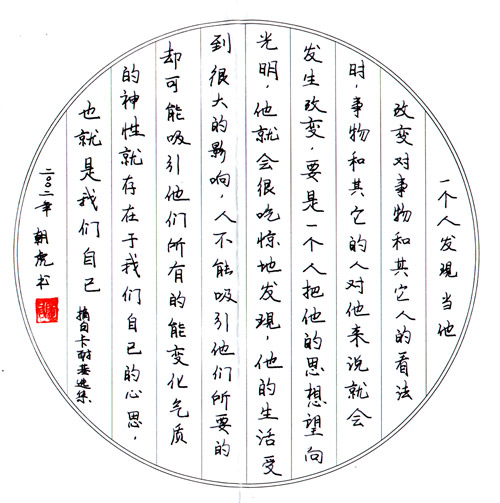 一个人发現当他
改变对事物和其它人的看法
时，事物和其它的人对他来说就会
发生改变，要是一个人把他的思想望向
光明，他就会很吃惊地发現，他的生活受
到很大的影响，人不能吸引他们所要的
却可能吸引他们所有的能变化气质
的神性就存在于我们自己的心思，
也就是我们自己
摘自卡耐基选集
二〇〇二年 朝虎书